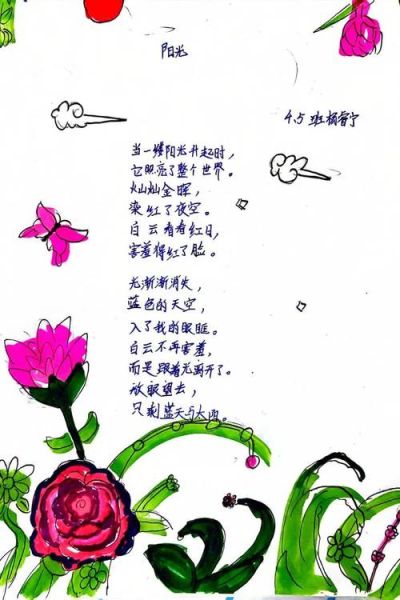 阳光
4.5班杨睿宁
当一缕阳光升起时，
它照亮了整个世界。
灿灿金晖，
染红了夜空。
白云看看红日，
害羞得红了脸。
光渐渐消失，
蓝色的天空，
入了我的眼眶。
白云不再害羞，
而是跟着光离开了。
放眼望去，
只剩蓝天与大肉。